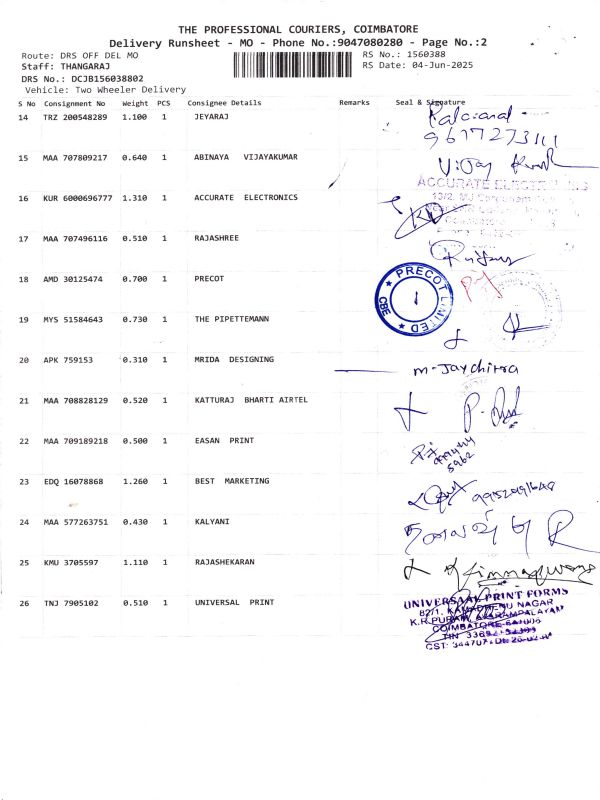 THE PROFESSIONAL COURIERS, COIMBATORE
Delivery Runsheet - MO - Phone No.:9047080280 - Page No.:2
Route: DRS OFF DEL MO
RS No.: 1560388
Staff: THANGARAJ
RS Date: 04-Jun-2025
DRS No.: DCJB156038802
Vehicle: Two Wheeler Delivery
S No Consignment No Weight PCS Consignee Details Remarks Seal & Signature
14 TRZ 200548289 1.100 1 JEYARAJ
15 MAA 707809217 0.640 1 ABINAYA VIJAYAKUMAR
Vijay
ACCURATE
16 KUR 6000696777 1.310 1 ACCURATE ELECTRONICS
17 MAA 707496116 0.510 1 RAJASHREE
18 AMD 30125474 0.700 1 PRECOT
PRECOT LIMITED
CBE
19 MYS 51584643 0.730 1 THE PIPETTEMANN
20 APK 759153 0.310 1 MRIDA DESIGNING
m-Jaychitra
21 MAA 708828129 0.520 1 KATTURAJ BHARTI AIRTEL
22 MAA 709189218 0.500 1 EASAN PRINT
23 EDQ 16078868 1.260 1 BEST MARKETING
24 MAA 577263751 0.430 1 KALYANI
25 KMU 3705597 1.110 1 RAJASHEKARAN
26 TNJ 7905102 0.510 1 UNIVERSAL PRINT
UNIVERSAL PRINT FORMS
82/1, KAMADHENU NAGAR
K.R.PURAM, AVARAMPALAYAM
COIMBATORE-641006